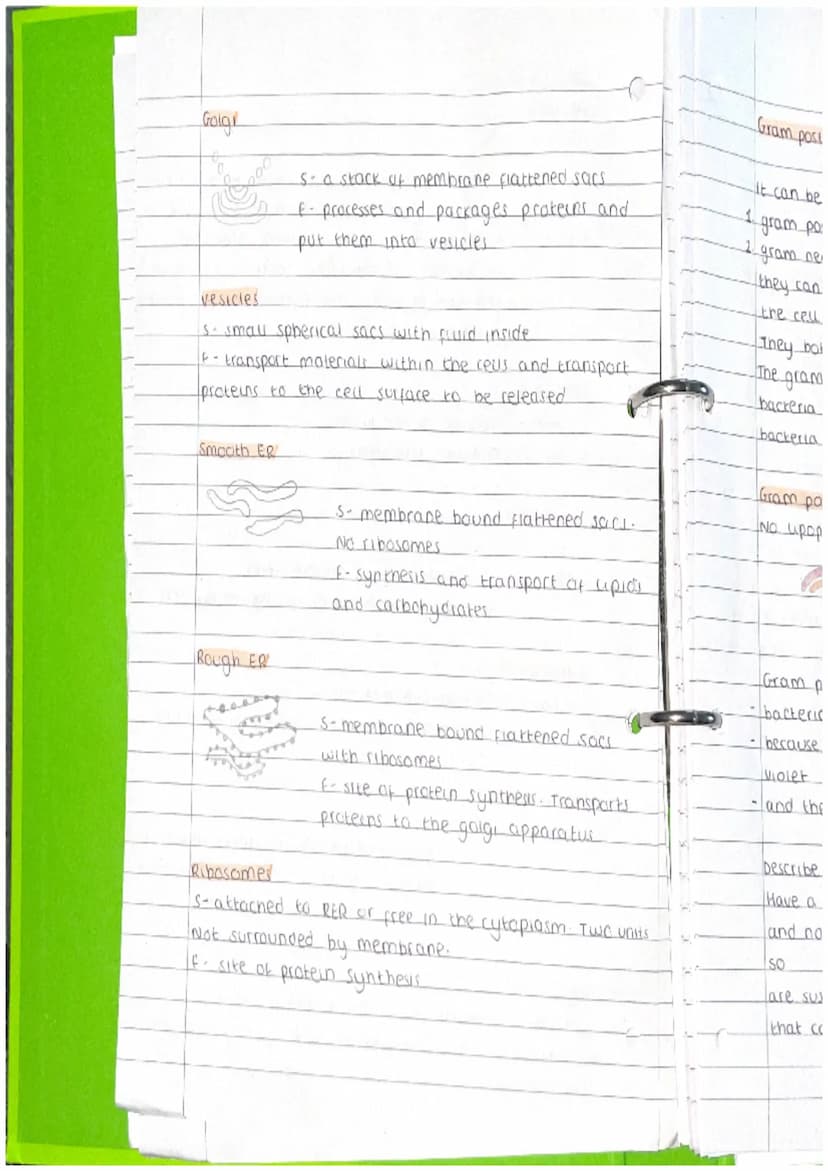 Golgi
s- a stack of membrane flattened sacs
f- processes and packages proteins and
put them into vesicles
vesicles
s- small spherical sacs with fluid inside
f- transport materials within the cells and transport
proteins to the cell surface to be released
Smooth ER
s- membrane bound flattened sacs.
No ribosomes
f- synthesis and transport of lipids
and carbohydrates
Rough ER
s- membrane bound flattened sacs
with ribosomes
f- site of protein synthesis. Transports
proteins to the golgi apparatus
Ribosomes
s- attached to RER or free in the cytoplasm. Two units
Not surrounded by membrane.
f- site of protein synthesis
Gram posi
It can be
1. gram po
2. gram ne
they can
the cell
They bo
The gram
bacteria
bacteria
Gram po
No
Gram p
- bacteri
- because
violet
- and
Describe
Have a
and no
so
are sus
that co